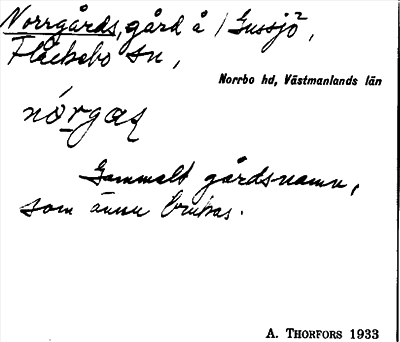 Norrgårds, gård å 1 Gussjö²,
Fläckebo sn,
Norrbo hd, Västmanlands län
nórgaş
Gammalt gårdsnamn,
som ännu brukas.
A. THORFORS 1933